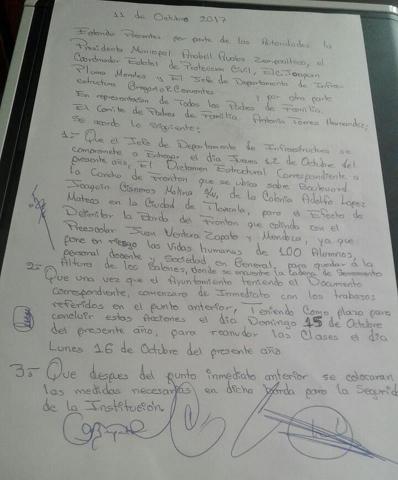 11 de Octubre 2017
Estando Presentes por parte de las Autoridades la
Presidenta Municipal Anabell Avalos Zempoalteca, el
Coordinador Estatal de Proteccion Civil, El C. Joaquin
Pluma Morales y El Jefe de Departamento de Infraes-
estructura Gregorio P. Cervantes y por otra parte
En representación de Todos los Padres de Familia.
El Comite de Padres de Familia, Antonia Torres Hernandez,
Se acordo lo siguiente:
1.- Que el Jefe de Departamento de Infraestructura se
compromete a Entregar el dia Jueves 12 de Octubre del
presente año, El Dictamen Estructural Correspondiente a
la Cancha de Fronton que se ubica sobre Boulevard
Joaquin Cisneros Molina S/N, de la Colonia Adolfo Lopez
Mateos en la Ciudad de Tlaxcala, para el Efecto de
Delimitar la Barda del Fronton que colinda con el
Preescolar Juan Ventura Zapato y Mendoza, ya que
pone en riesgo las Vidas Humanas de 100 Alumnos,
personal docente y Sociedad en General, para quedar a la
Altura de los Balones, donde se encuentra la cadena de
2.- Que una vez que el Ayuntamiento teniendo el Documento
Correspondiente, comenzara de Inmediato con los trabajos
referidos en el punto anterior, Teniendo Como plazo para
concluir estas Acciones el día Domingo 15 de Octubre
del presente año, para reanudar las Clases el día
Lunes 16 de Octubre del presente año
3.- Que despues del punto inmediato anterior se colocaran
las medidas necesarias en dicha barda para la Segurid
de la Institución.